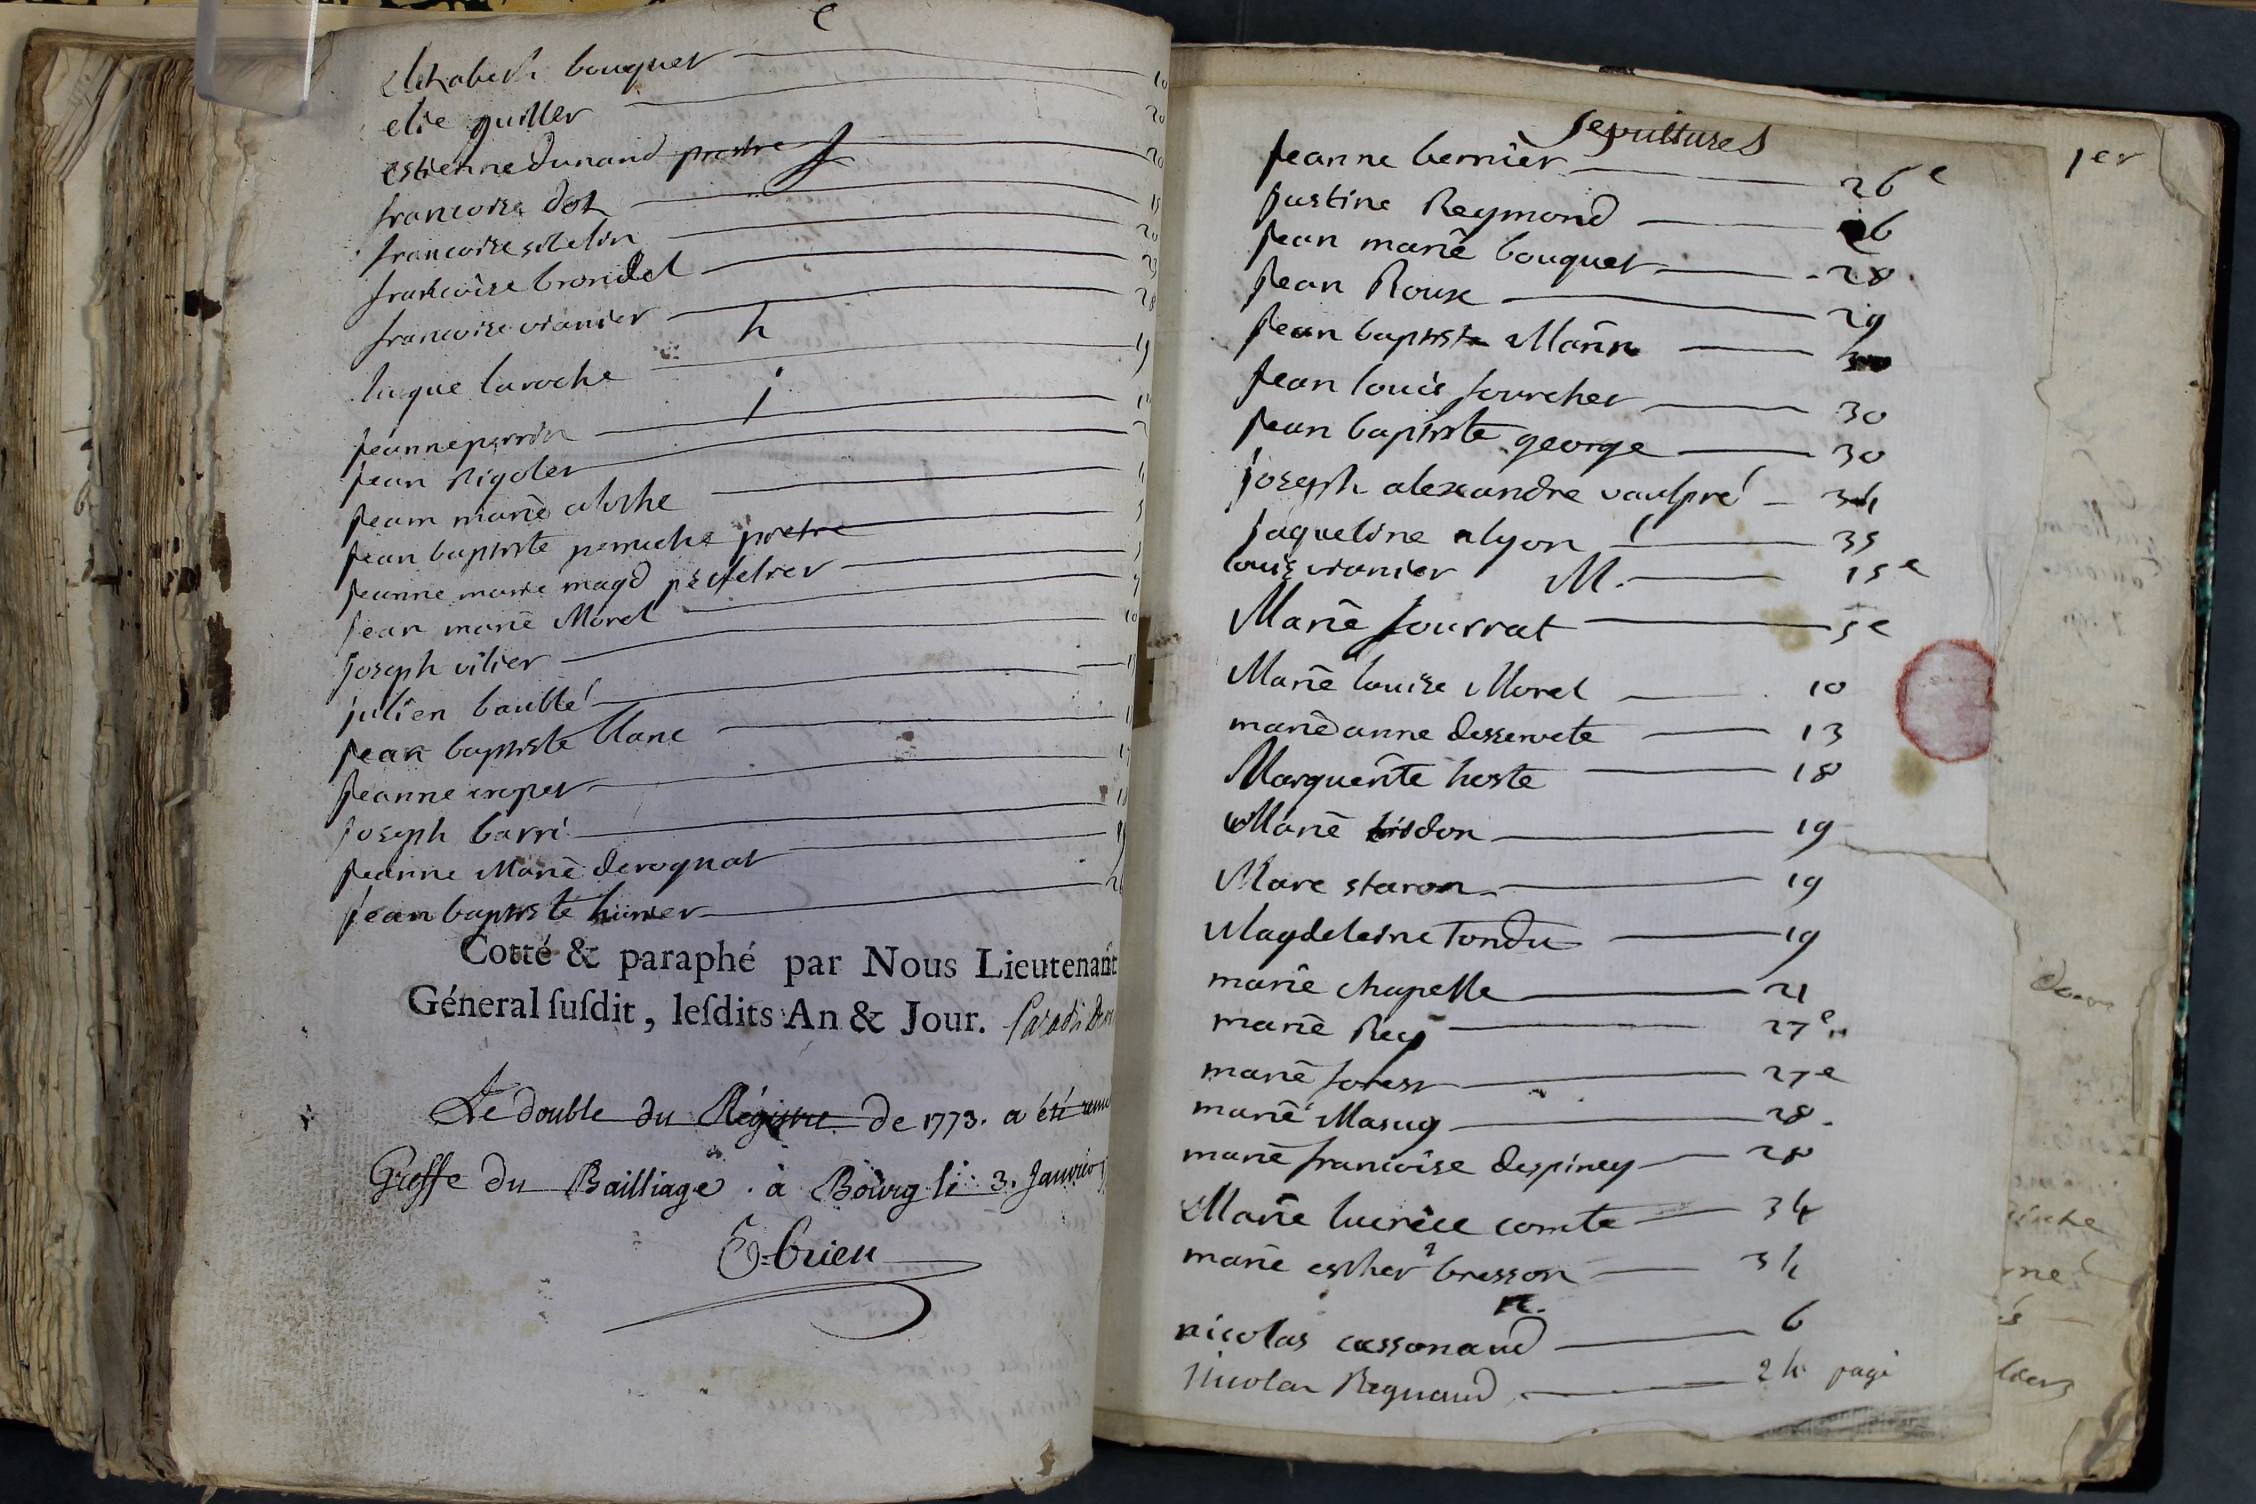 e
elizabeth bouquet 10
elie guiller 20
estienne dunand prestre 20
f
francoise dot 15
francoise 20
francoise brondel 23
francoise vianier 28
h
hugue laroche 19
j
jeanne perrin
jean rigolet
jeam marie
jean baptiste perruche pretre
jeanne marie magd
jean marie Morel
joseph vilier 10
julien baublé
jean baptiste blanc
jeanne
joseph barri
jeanne Marie derognat
jean baptiste
Cotté & paraphé par Nous Lieutenant
Géneral ſuſdit, leſdits An & Jour.
Le double du Régistre de 1773. a été remis
Greffe du Bailliage à Bourg le 3. Janvier
sepultures
1er
jeanne bernier 26e
justine Reymond 26
jean marie bouquet 28
jean Roux 29
jean baptiste Marin
jean louis fourcher 30
jean baptiste george 30
joseph alexandre vaulpré 34
jaqueline alyon 35
l
louis vianier 15e
M.
Marie fourrat 5e
Marie louise Morel 10
marie anne desservete 13
Marguerite hoste 18
Marie 19
Marc staron 19
Magdeleine Tondu 19
marie chapelle 21
marie Rey 27e
marie forest 27e
marie Masuy 28.
marie francoise despiney 28
Marie lucrèce comte 34
marie esther bresson 34
n.
nicolas cassonaud 6
Nicolas Regnaud 24 page